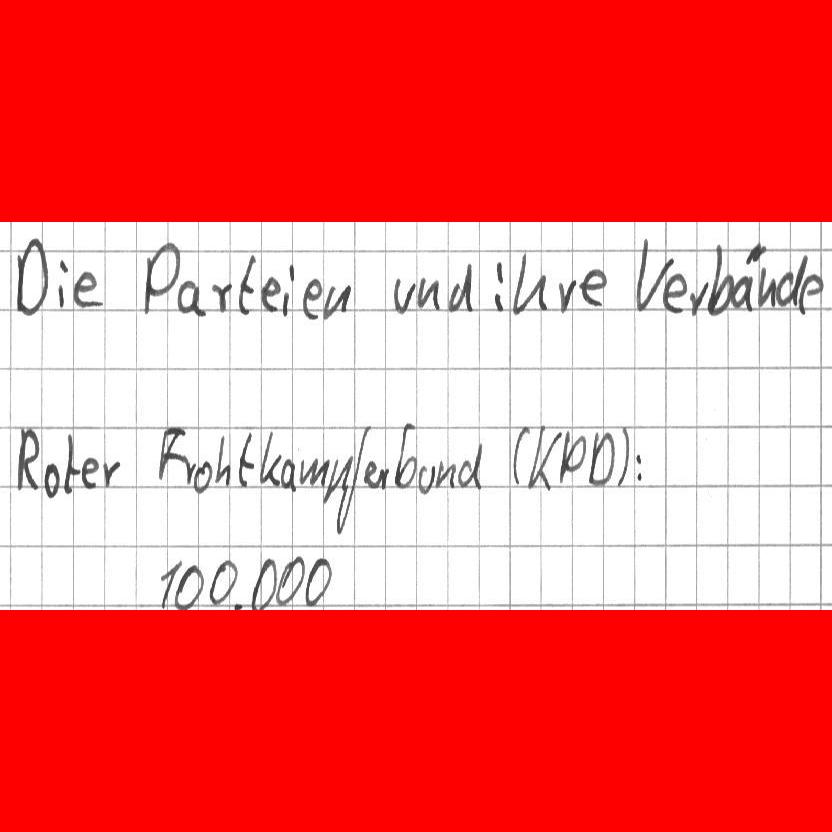 Die Parteien und ihre Verbände
Roter Frohtkampferbund (KPD):
100.000